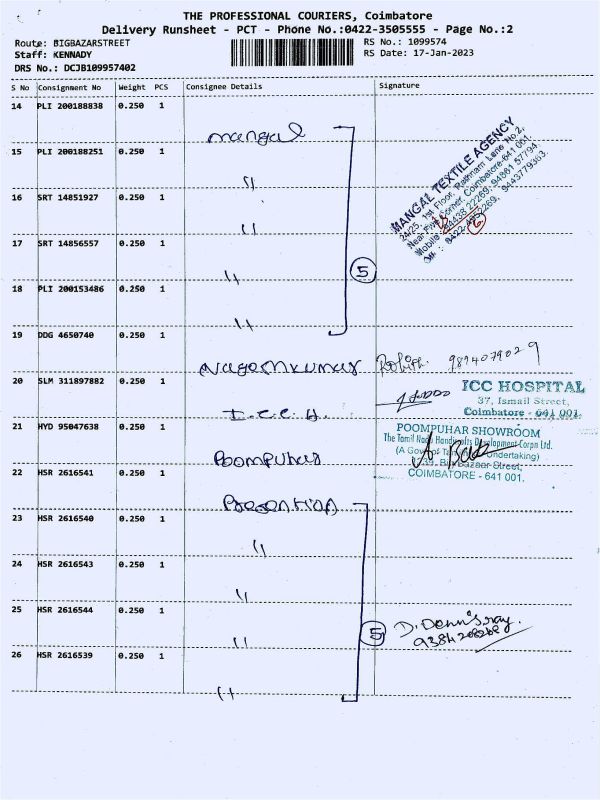 THE PROFESSIONAL COURIERS, Coimbatore
Delivery Runsheet - PCT - Phone No.:0422-3505555 - Page No.:2
Route: BIGBAZARSTREET
Staff: KENNADY
DRS No.: DCJB109957402
RS No.: 1099574
RS Date: 17-Jan-2023
S No Consignment No Weight PCS Consignee Details Signature
14 PLI 200188838 0.250 1 Mangal
15 PLI 200188251 0.250 1 "
16 SRT 14851927 0.250 1 "
17 SRT 14856557 0.250 1 "
18 PLI 200153486 0.250 1 "
5
MANGAL TEXTILE AGENCY
24/25, 1st Floor, Rathnam Lane No 2,
Near Five Corner, Coimbatore-641 001.
Mobile : 94438 22269, 94861 57794
9443779363.
6
19 DDG 4650740 0.250 1 Nageshkumar
20 SLM 311897882 0.250 1 I.C.C.H.
ICC HOSPITAL
37, Ismail Street,
Coimbatore - 641 001.
21 HYD 95047638 0.250 1 Poompuhar
POOMPUHAR SHOWROOM
The Tamil Nadu Handicrafts Development Corpn Ltd.
(A Govt of Tamil Undertaking)
Big Bazaar Street,
COIMBATORE - 641 001.
22 HSR 2616541 0.250 1
23 HSR 2616540 0.250 1 "
24 HSR 2616543 0.250 1 "
25 HSR 2616544 0.250 1 "
26 HSR 2616539 0.250 1 "
5